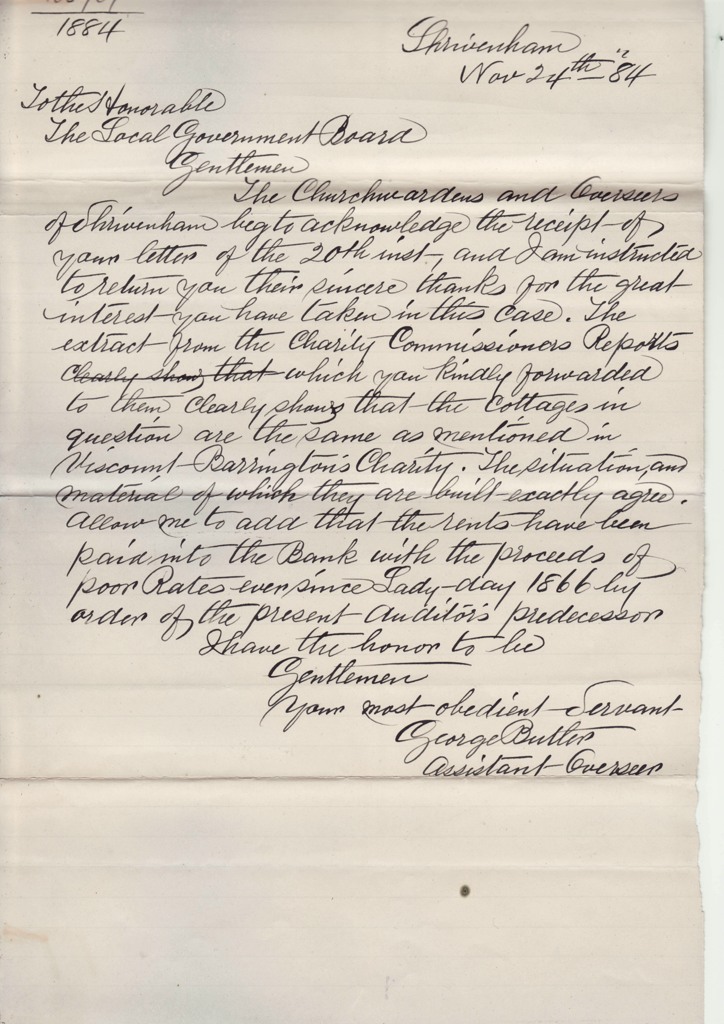 1884
Shrivenham
Nov 24th "84
To the Honorable
The Local Government Board
Gentlemen
The Churchwardens and Overseers
of Shrivenham beg to acknowledge the receipt of
your letter of the 20th inst, and I am instructed
to return you their sincere thanks for the great
interest you have taken in this case. The
extract from the Charity Commissioners Reports
clearly shows that which you kindly forwarded
to them clearly shows that the cottages in
question are the same as mentioned in
Viscount Barrington's Charity. The situation, and
material of which they are built exactly agree.
Allow me to add that the rents have been
paid into the Bank with the proceeds of
poor Rates ever since Lady-day 1866 by
order of the present Auditor's predecessor
I have the honor to be
Gentlemen
Your most obedient Servant
George Butler
Assistant Overseer